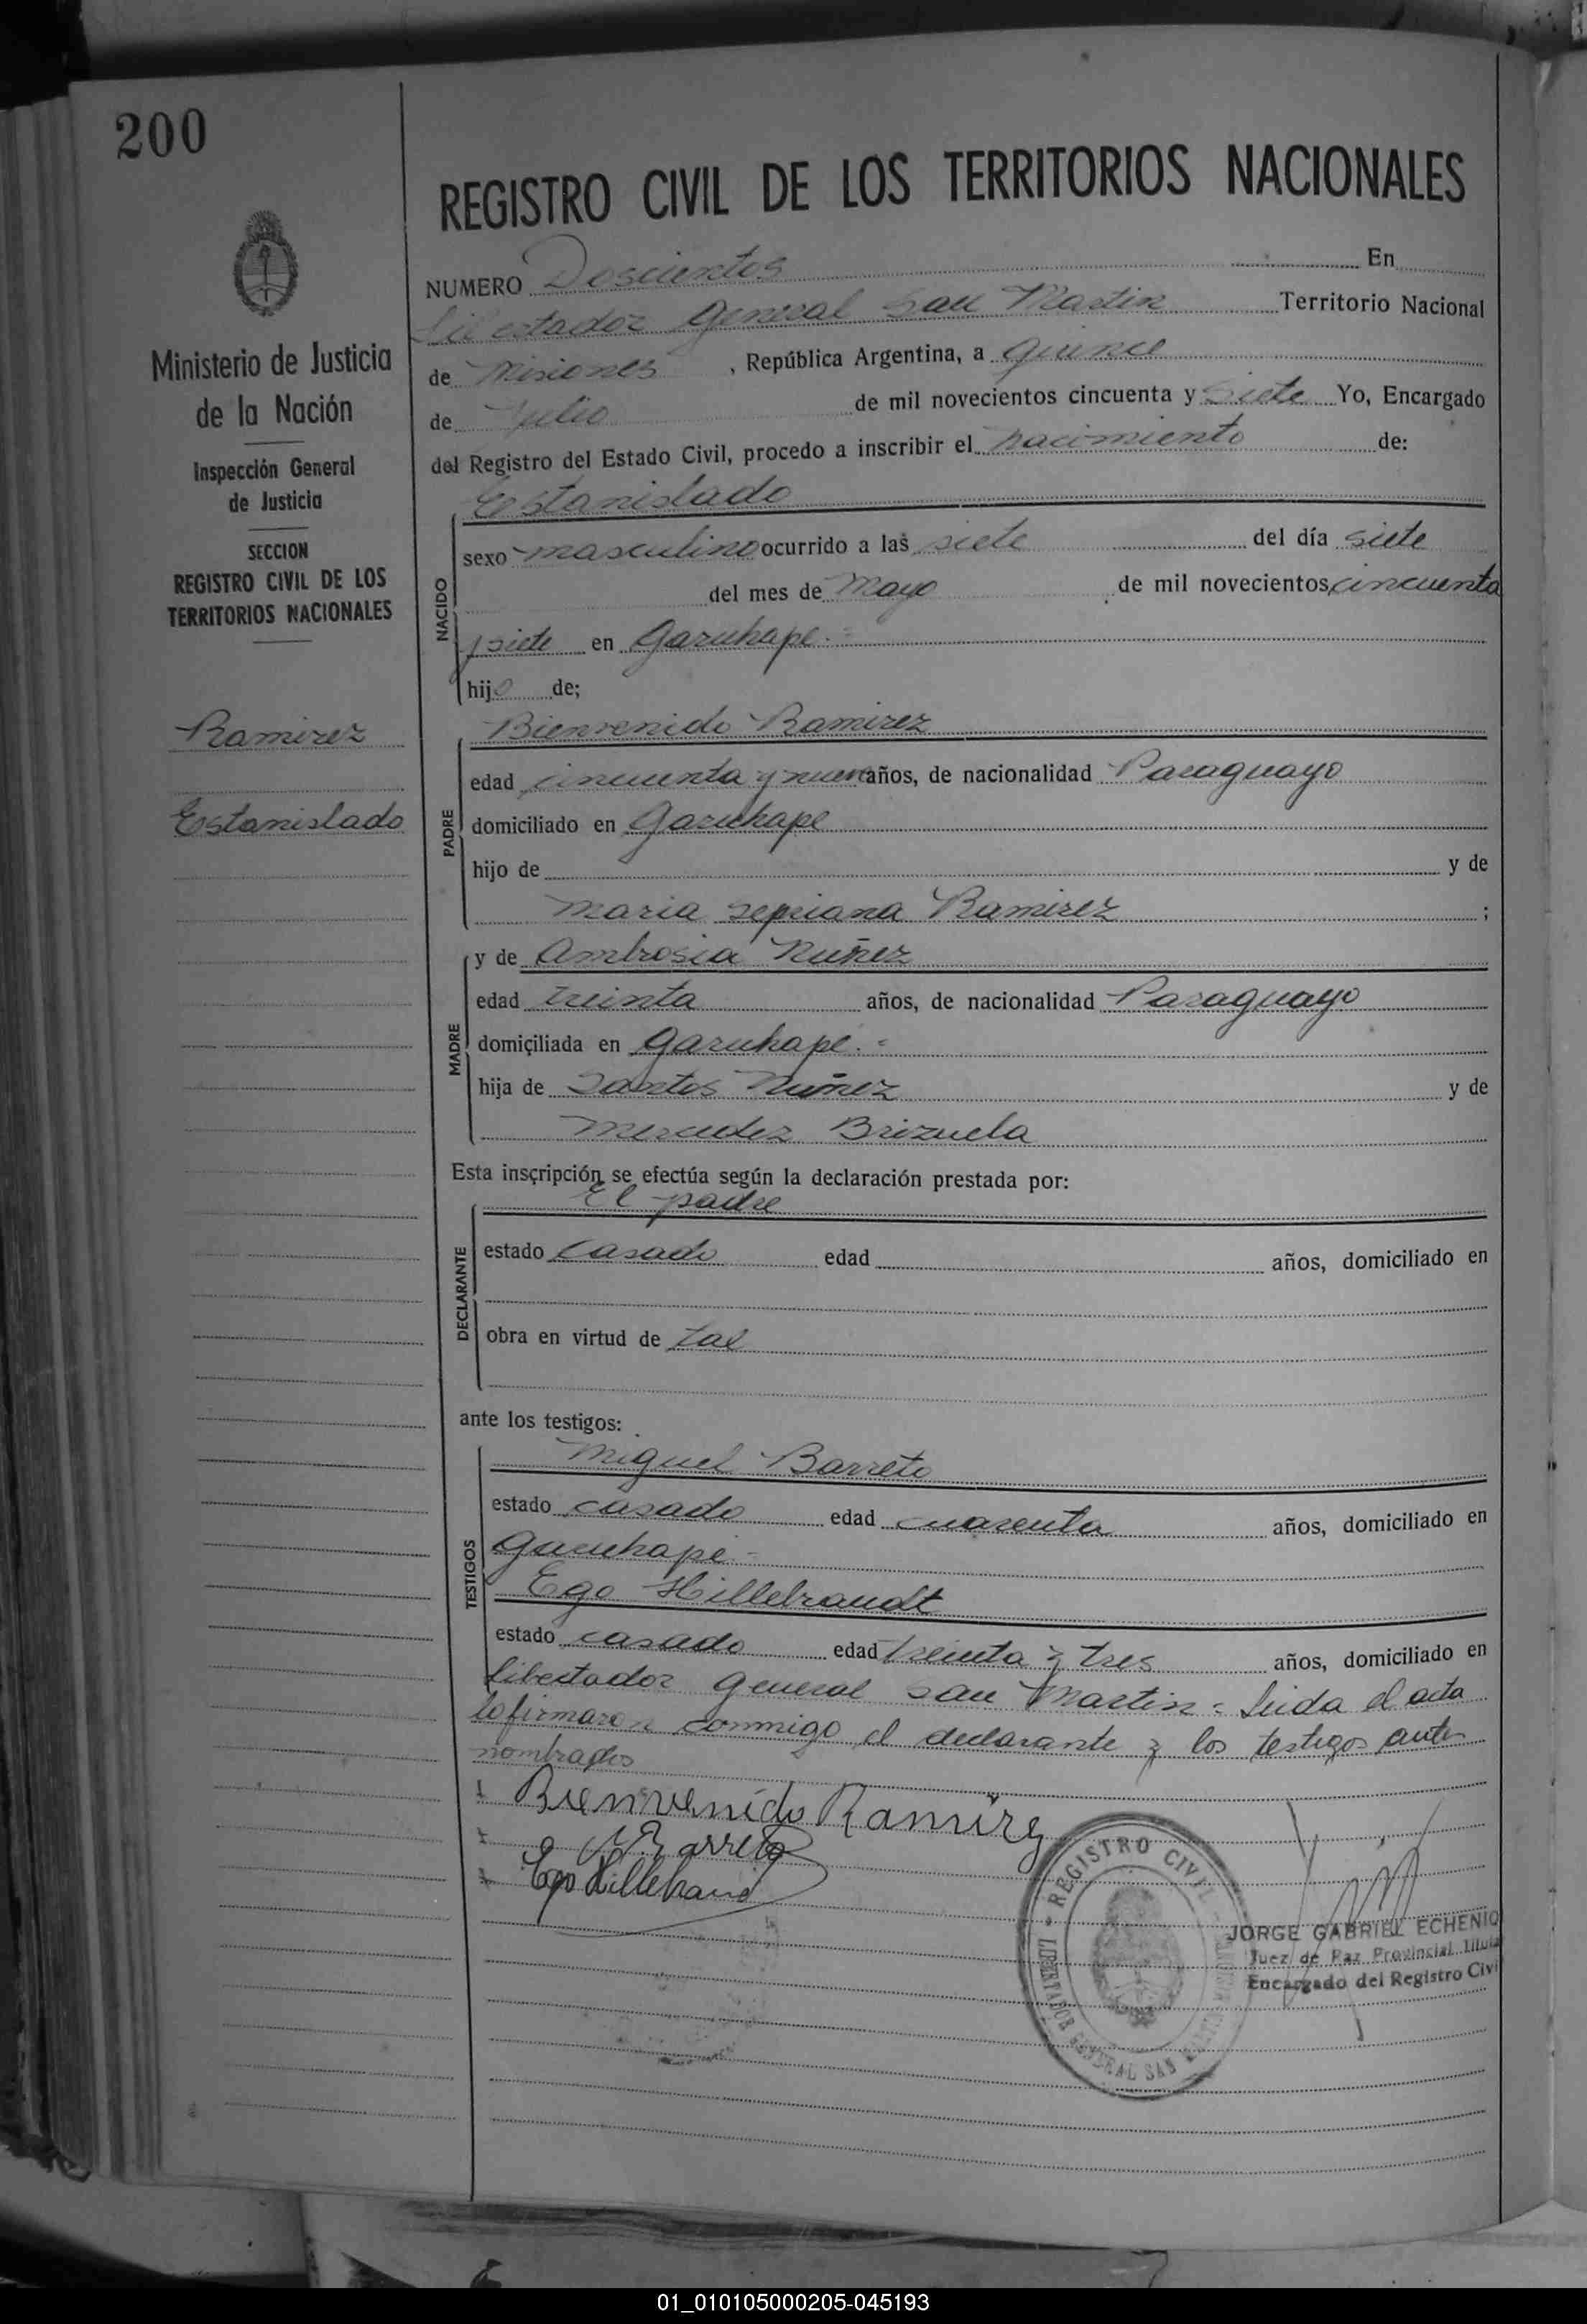 200
REGISTRO CIVIL DE LOS TERRITORIOS NACIONALES
Ministerio de Justicia
de la Nación
Inspección General
de Justicia
SECCION
REGISTRO CIVIL DE LOS
TERRITORIOS NACIONALES
Ramirez
Estanislado
NUMERO Doscientos En
Libertador General San Martin Territorio Nacional
de Misiones, República Argentina, a quince
de Julio de mil novecientos cincuenta y Siete Yo, Encargado
del Registro del Estado Civil, procedo a inscribir el nacimiento de:
Estanislado
NACIDO
sexo masculino ocurrido a las siete del día siete
del mes de Mayo de mil novecientos cincuenta
y siete en Garuhape.=
hijo de;
Bienvenido Ramirez
PADRE
edad cincuenta y nueve años, de nacionalidad Paraguayo
domiciliado en Garuhape
hijo de y de
Maria Sepriana Ramirez ;
y de Ambrosia Nuñez
MADRE
edad treinta años, de nacionalidad Paraguayo
domiciliada en Garuhape.=
hija de Santos Nuñez y de
Mercedez Brizuela
Esta inscripción se efectúa según la declaración prestada por:
El padre
DECLARANTE
estado Casado edad años, domiciliado en
obra en virtud de tal
ante los testigos:
Miguel Barreto
TESTIGOS
estado casado edad cuarenta años, domiciliado en
Garuhape.=
Ego Hillebrandt
estado casado edad treinta y tres años, domiciliado en
Libertador General San Martin = Leida el acta
la firmaron conmigo el declarante y los testigos antes
nombrados
Bienvenido Ramirez
Barreto
Ego Hillebrand
REGISTRO CIVIL
LIBERTADOR GENERAL SAN MARTIN
JORGE GABRIEL ECHENIQ
Juez de Paz Provincial Titula
Encargado del Registro Civi
01_010105000205-045193